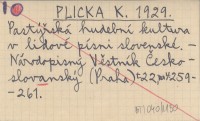 PLICKA K. 1929.
Pastýřská hudební kultura
v lidové písni slovenské. –
Národopisný Věstník Česko-
slovanský (Praha) t 22, pp. 259-
-261.